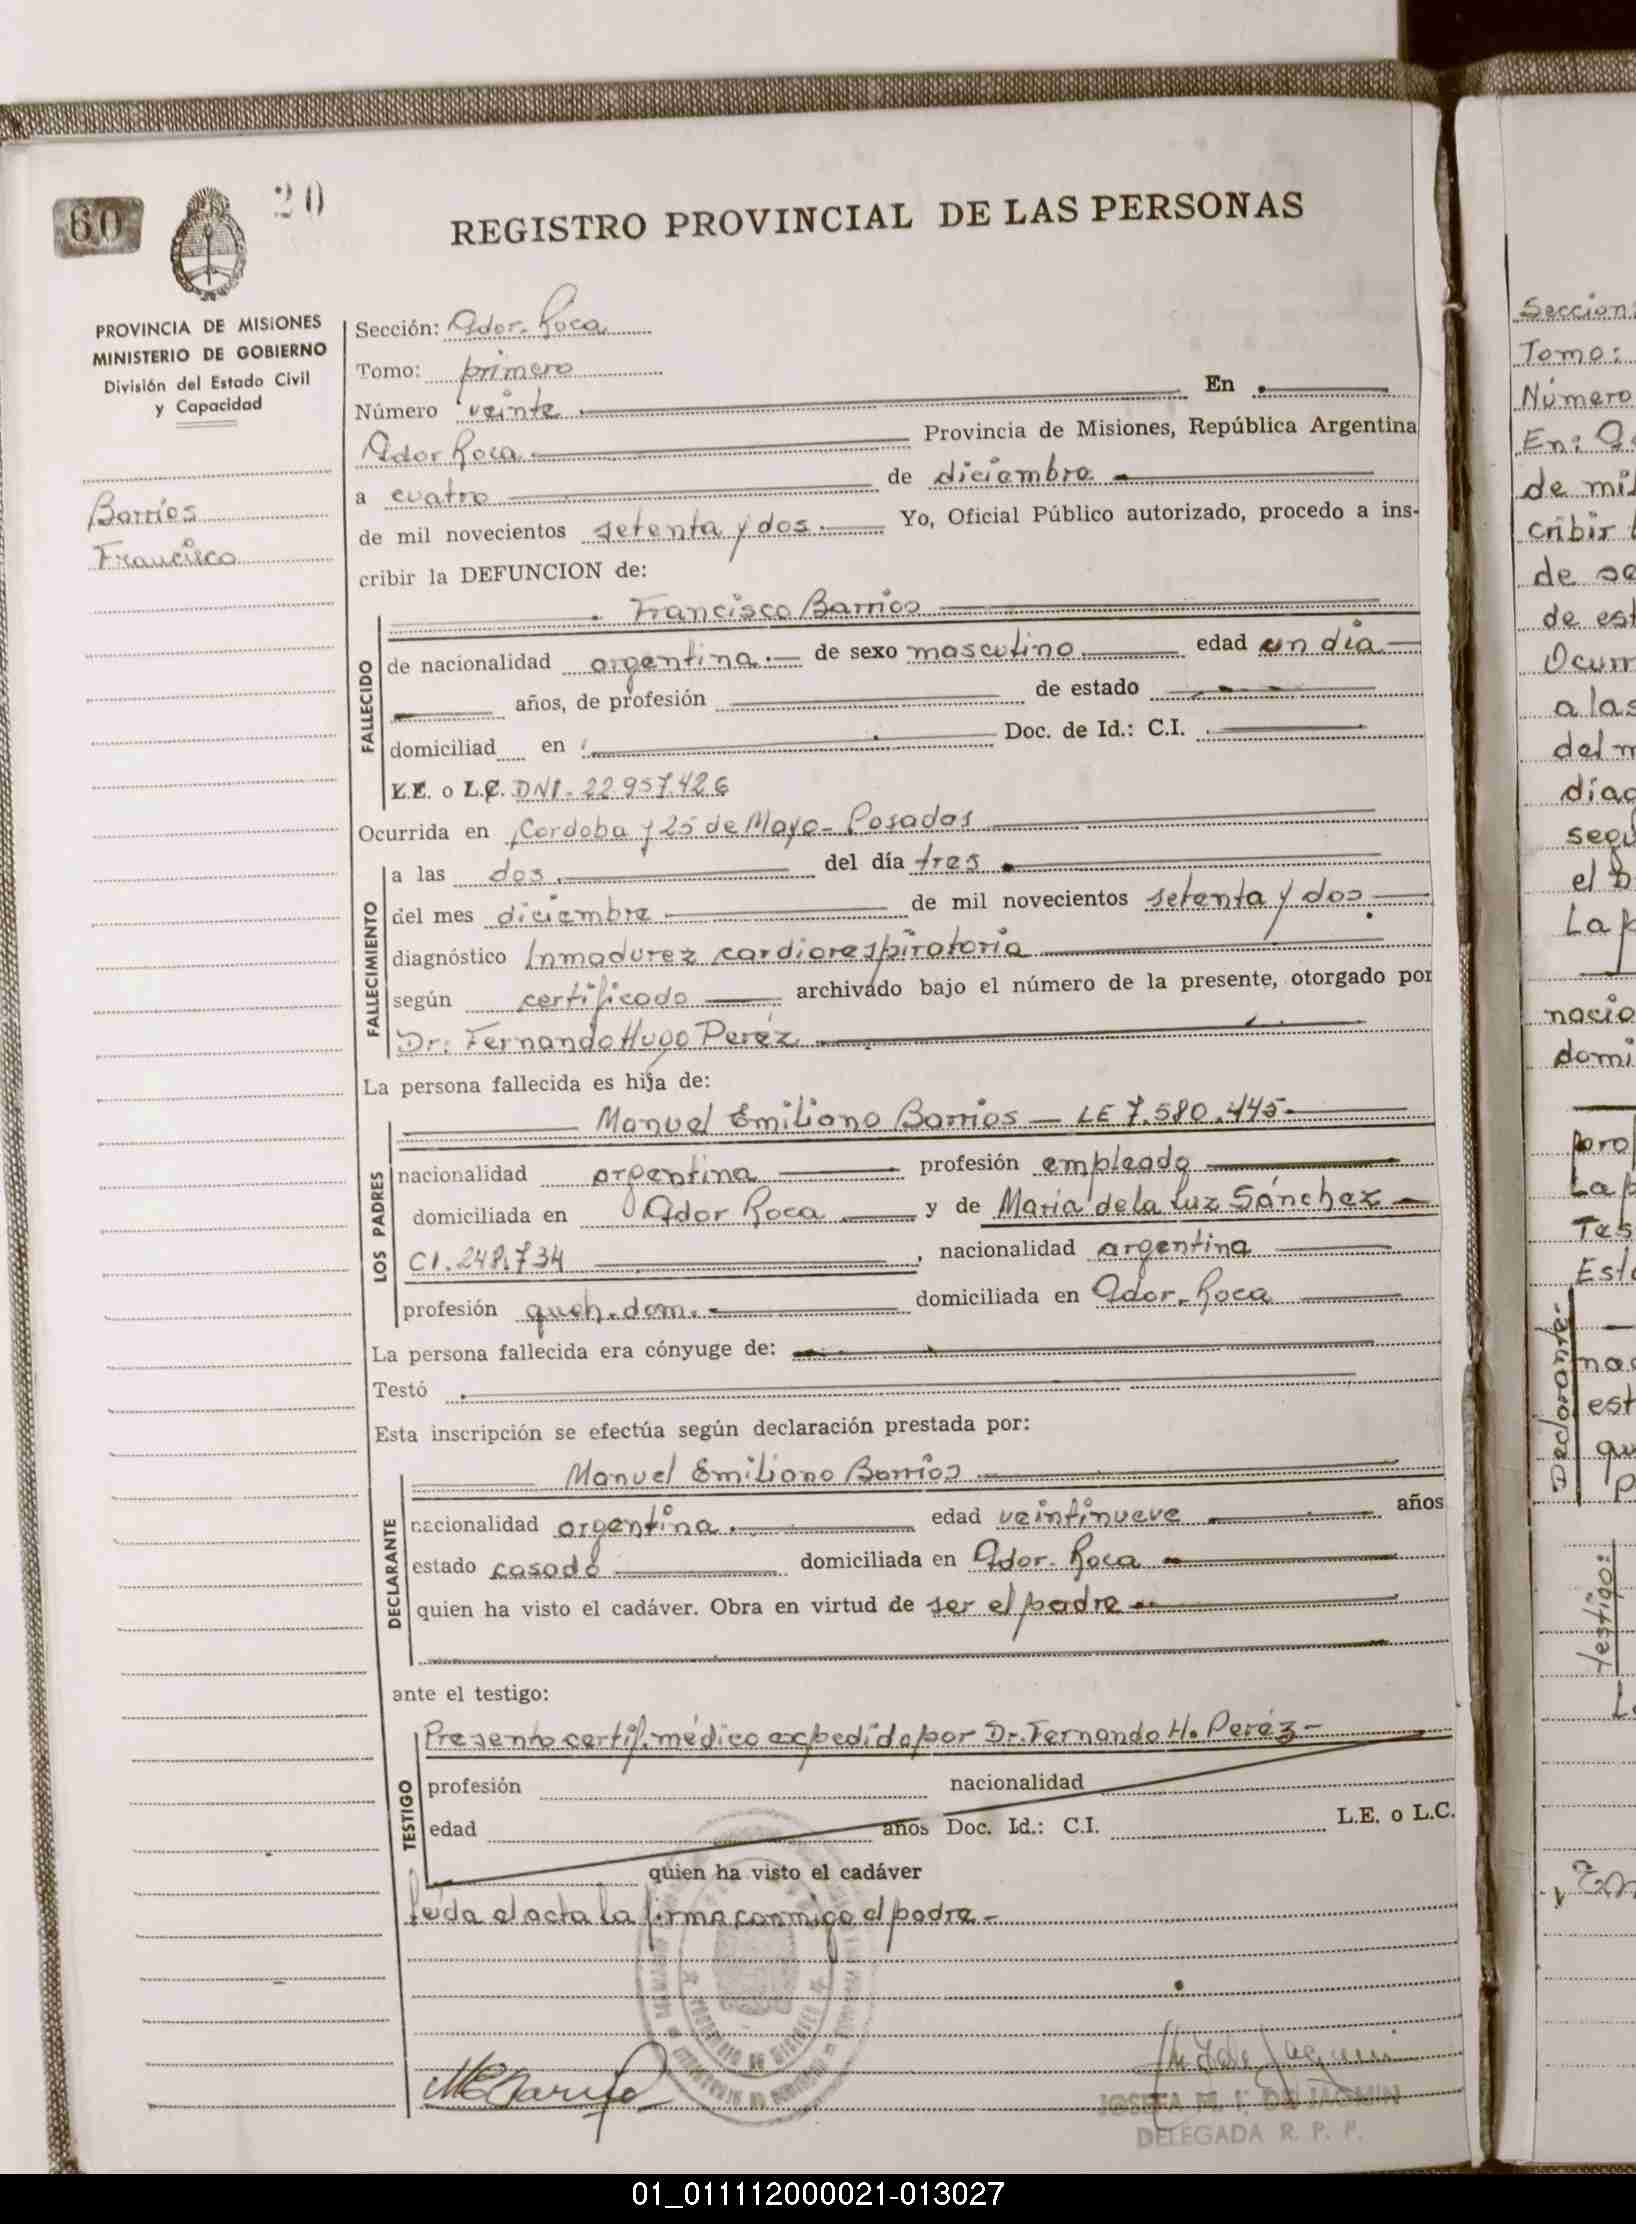 60
20
REGISTRO PROVINCIAL DE LAS PERSONAS
PROVINCIA DE MISIONES
MINISTERIO DE GOBIERNO
División del Estado Civil
y Capacidad
Barrios
Francisco
Sección: Gdor. Roca
Tomo: primero
Número veinte En
Gdor Roca Provincia de Misiones, República Argentina
a cuatro de diciembre
de mil novecientos setenta y dos. Yo, Oficial Público autorizado, procedo a ins-
cribir la DEFUNCION de:
Francisco Barrios
FALLECIDO
de nacionalidad argentina. de sexo masculino edad un día
años, de profesión de estado
domiciliad en Doc. de Id.: C.I.
L.E. o L.C. DNI. 22.957.426
Ocurrida en Cordoba y 25 de Mayo - Posadas
FALLECIMIENTO
a las dos. del día tres
del mes diciembre de mil novecientos setenta y dos.
diagnóstico Inmadurez cardiorespiratoria
según certificado archivado bajo el número de la presente, otorgado por
Dr: Fernando Hugo Peréz
La persona fallecida es hija de:
LOS PADRES
Manuel Emiliano Barrios - LE 7.580.445
nacionalidad argentina profesión empleado
domiciliada en Gdor Roca y de Maria de la Luz Sánchez
CI. 248.734, nacionalidad argentina
profesión queh. dom. domiciliada en Gdor. Roca
La persona fallecida era cónyuge de:
Testó
Esta inscripción se efectúa según declaración prestada por:
DECLARANTE
Manuel Emiliano Barrios
nacionalidad argentina. edad veintinueve años
estado casado domiciliada en Gdor. Roca
quien ha visto el cadáver. Obra en virtud de ser el padre
ante el testigo:
TESTIGO
Presento certif. médico expedido por Dr. Fernando H. Peréz -
profesión nacionalidad
edad años Doc. Id.: C.I. L.E. o L.C.
quien ha visto el cadáver
leída el acta la firma conmigo el padre -
MEBarrios
JOSEFA M. F. DE JACMIN
DELEGADA R. P. P.
Seccion:
Tomo:
Número
En:
de mil
cribir
de se
de est
Ocurr
a las
del m
diag
segu
el
La p
nacio
domi
prof
La p
Tes
Est
Declarante:
na
est
qu
p
testigo:
01_011112000021-013027